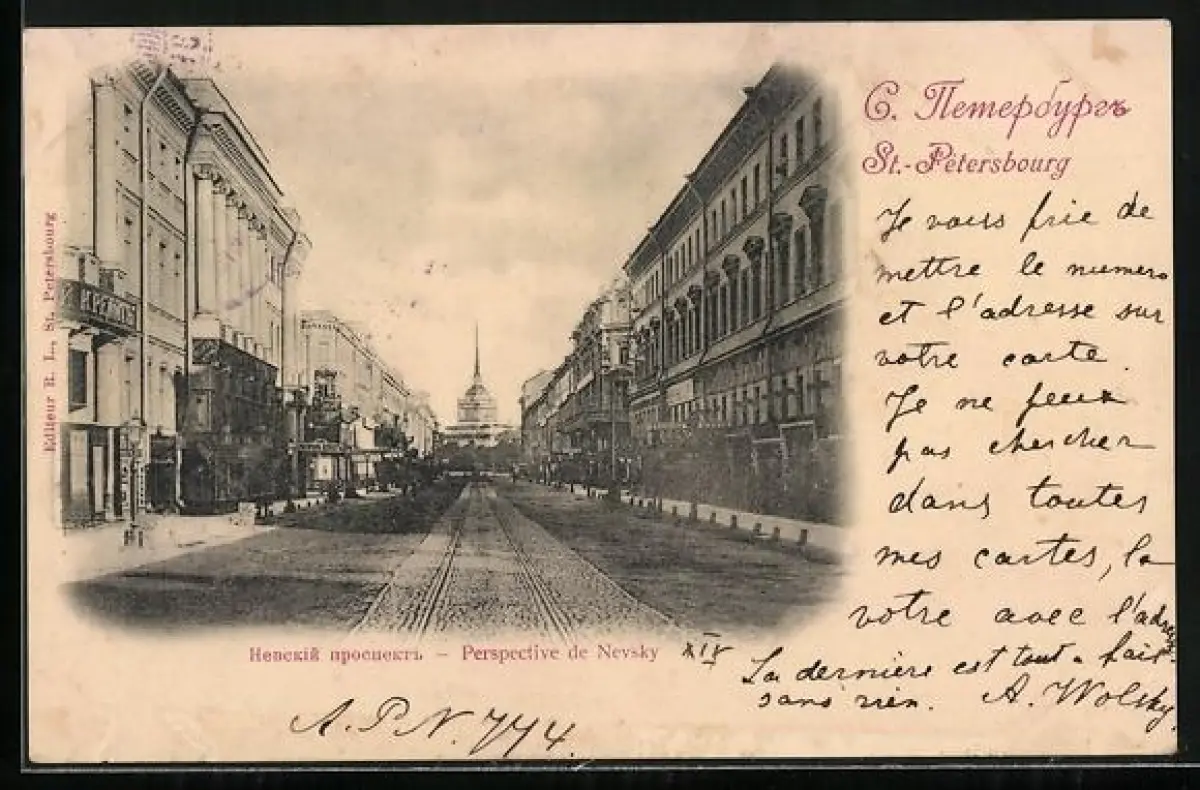 С. Петербургъ
St.-Pétersbourg
Je vous prie de
mettre le numero
et l'adresse sur
votre carte.
Je ne peux
pas chercher
dans toutes
mes cartes, la
votre avec l'adresse.
La dernière est tout a fait
sans rien. A. Wolsky.
Editeur R. L., St. Petersbourg
Невскій проспектъ – Perspective de Nevsky
XIV
A.P.N. 774.